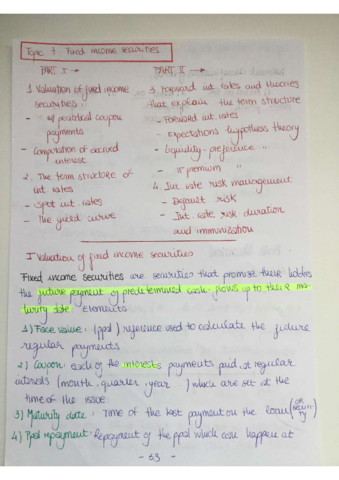 Topic 7. Fixed income securities
PART I →
PART II →
1. Valuation of fixed income
securities.
- w/ periodical coupon
payments
- Computation of accrued
interest
2. The term structure of
int. rates
- Spot int. rates
- The yield curve
3. Forward int. rates and theories
that explain the term structure
- Forward int. rates
- Expectations hypothesis theory
- Liquidity-preference "
- π premium "
4. Int. rate risk management
- Default risk
- Int. rate risk duration
and immunization
I Valuation of fixed income securities
Fixed income securities are securities that promise their holders
the future payment of predetermined cash-flows up to their ma-
turity date. Elements
1) Face value: (ppal) reference used to calculate the future
regular payments
2) Coupon: each of the interests payments paid at regular
interests (month, quarter, year) which are set at the
time of the issue.
3) Maturity date: Time of the last payment on the loan (OR SECURITY)
4) Ppal repayment: Repayment of the ppal which can happen at
- 53 -